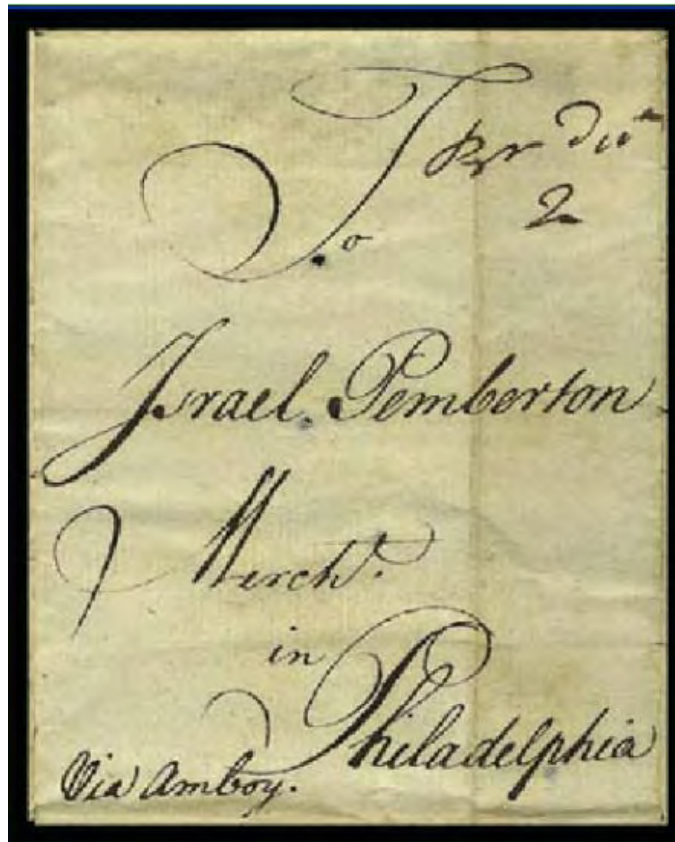 To
2
Israel Pemberton
Merch.t
in
Philadelphia
Via Amboy.